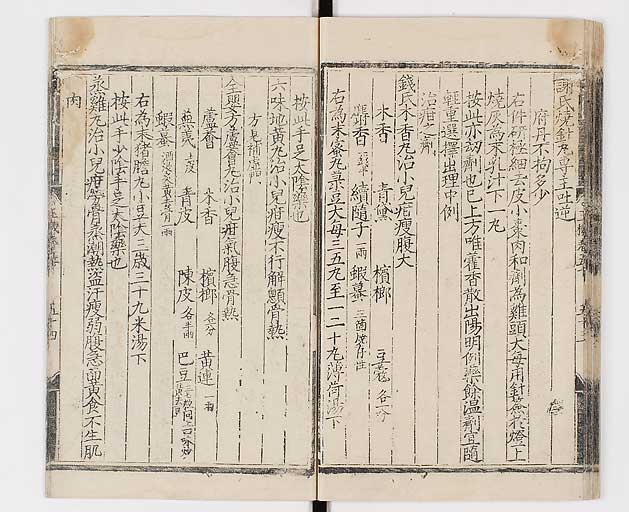 謝氏燒針丸專主吐逆
府丹不拘多少
右件研極細去皮小棗肉和劑為雞頭大每用針簽於燈上
燒灰為末乳汁下一丸
按此亦刼劑也已上方唯藿香散出陽明例藥餘温劑宜隨
輕重選擇出理中例
治疳之劑
錢氏木香丸治小兒疳瘦腹大
木香 青黛 檳榔 豆蔻 各一分
麝香 續隨子 一兩 蝦蟇 三箇燒存性
右為末蜜丸菉豆大每三五丸至一二十丸薄荷湯下
按此手足太陰藥也
六味地黄丸治小兒疳瘦不行解顱骨熱
方見補虚門
全嬰方蘆薈丸治小兒疳氣腹急骨熱
蘆薈 木香 檳榔 各分 黄連 一兩
蕪荑 去皮 青皮 陳皮 各半兩 巴豆
蝦蟇 一兩
右為末猪膽丸小豆大三歳三十丸米湯下
按此手少陰手足太陰藥也
蒸雞丸治小兒疳勞骨蒸潮熱盗汗瘦弱腹急面黄食不生肌
肉